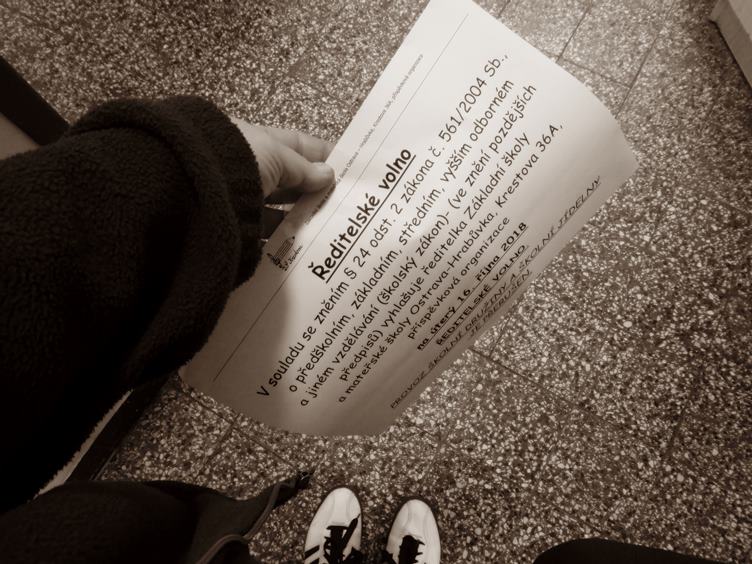 Ředitelské volno
V souladu se zněním § 24 odst. 2 zákona č. 561/2004 Sb.,
o předškolním, základním, středním, vyšším odborném
a jiném vzdělávání (školský zákon)- (ve znění pozdějších
předpisů) vyhlašuje ředitelka Základní školy
a mateřské školy Ostrava-Hrabůvka, Krestova 36A,
příspěvková organizace
na úterý 16. října 2018
ŘEDITELSKÉ VOLNO.
PROVOZ ŠKOLNÍ DRUŽINY A ŠKOLNÍ JÍDELNY
JE PŘERUŠEN.